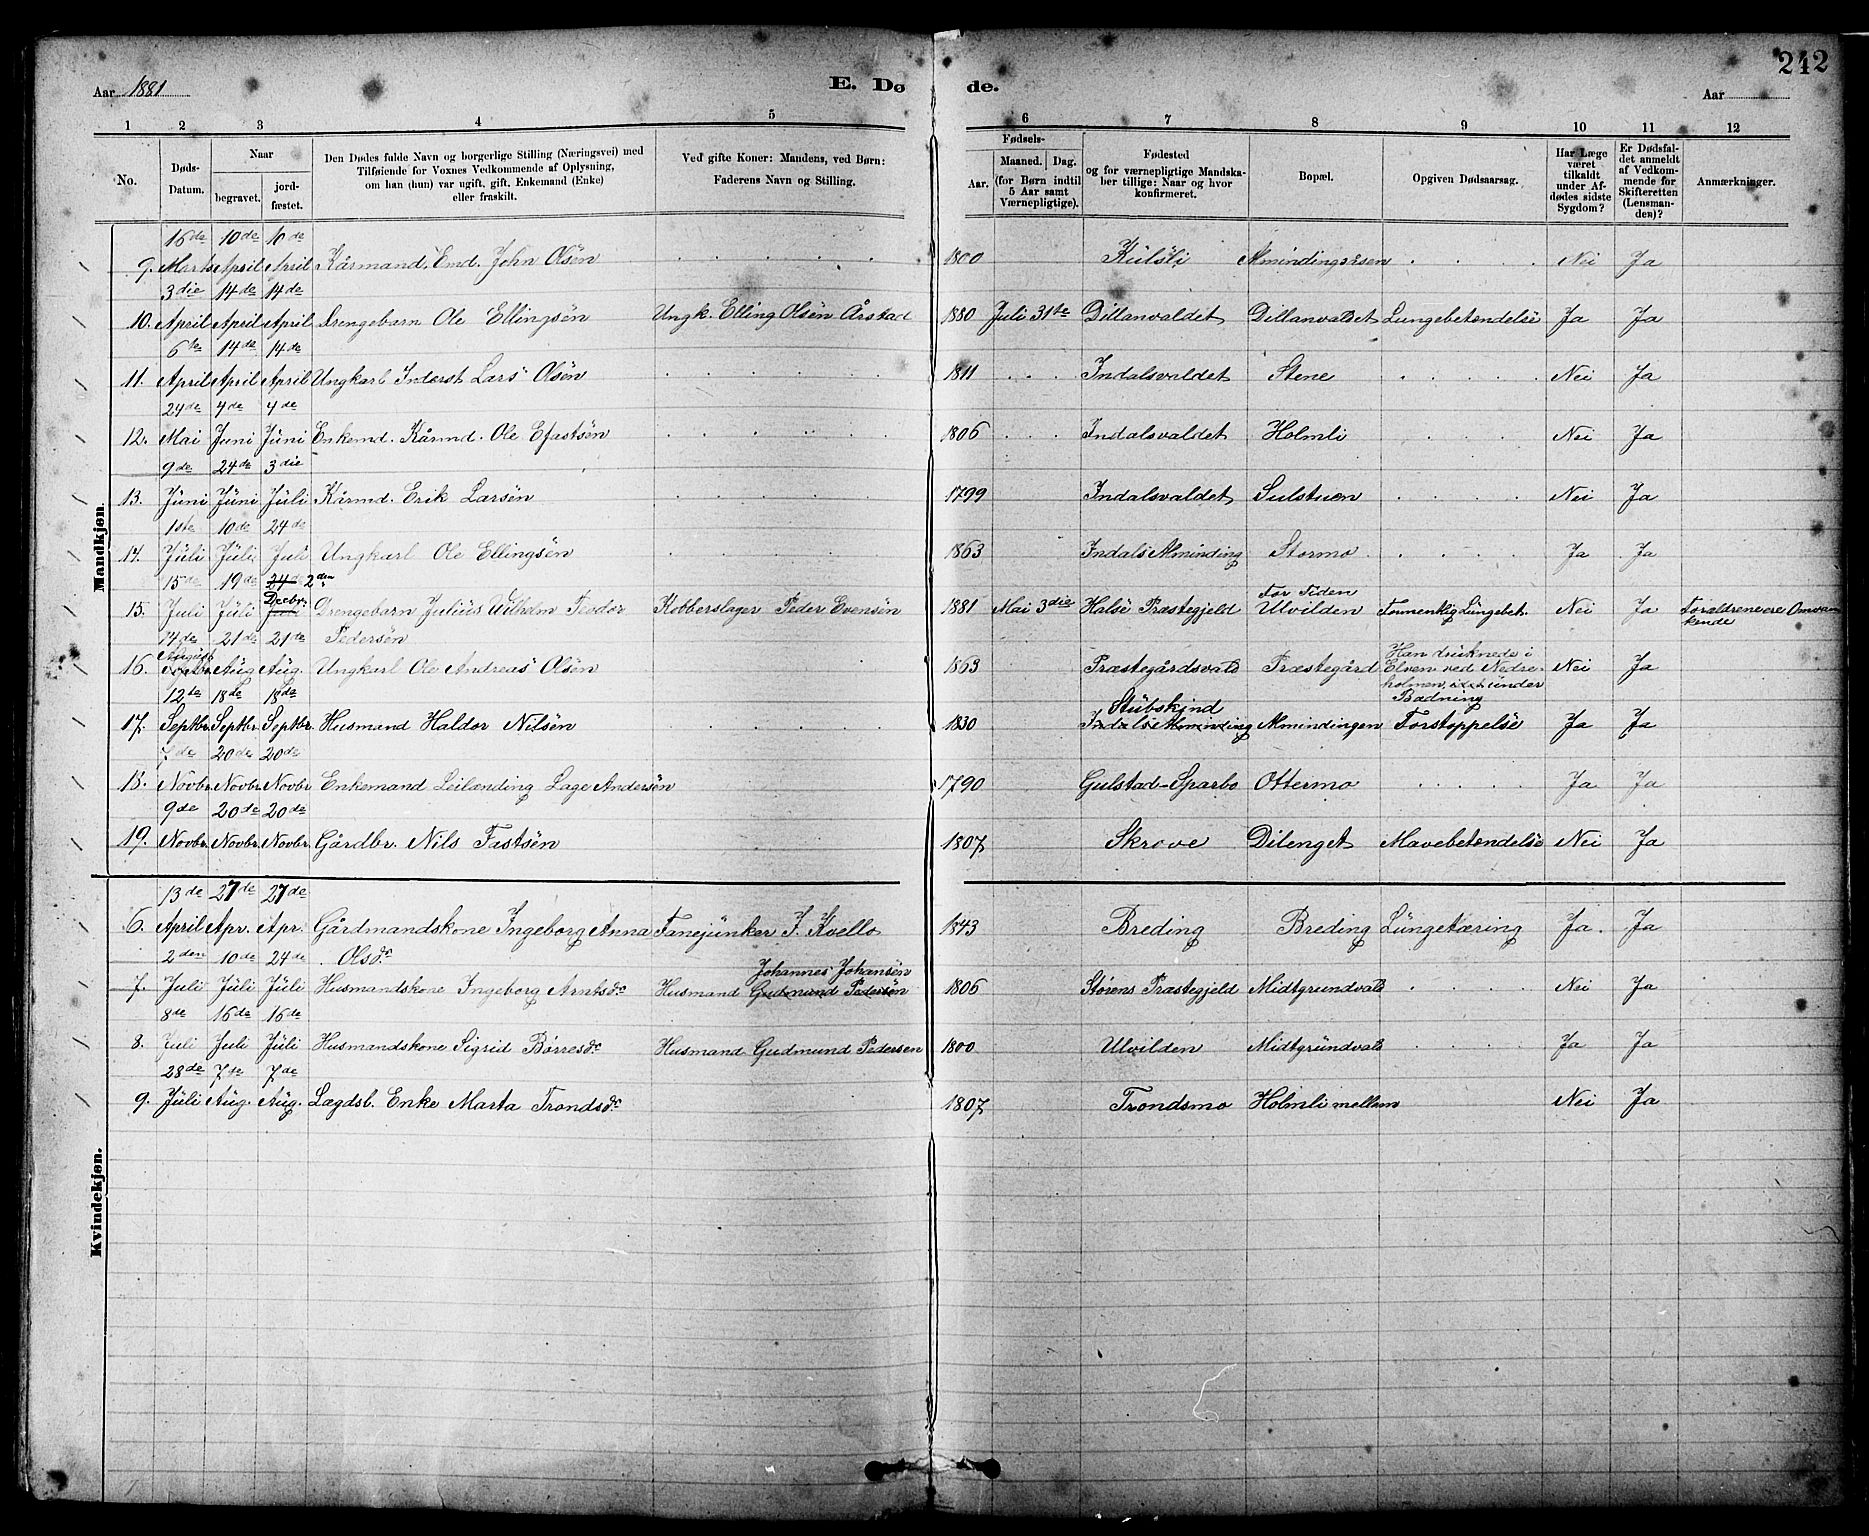 242
Aar 1881
E. Dø de.
Aar
1 2 3 4 5 6 7 8 9 10 11 12
No.
Døds-Datum.
Naar
begravet.
jord-fæstet.
Den Dødes fulde Navn og borgerlige Stilling (Næringsvei) med
Tilføiende for Voxnes Vedkommende af Oplysning,
om han (hun) var ugift, gift, Enkemand (Enke)
eller fraskilt.
Ved gifte Koner: Mandens, ved Børn:
Faderens Navn og Stilling.
Fødsels-
Aar.
Maaned. Dag.
(for Børn indtil
5 Aar samt
Værnepligtige).
Fødested
og for værnepligtige Mandska-
ber tillige: Naar og hvor
konfirmeret.
Bopæl.
Opgiven Dødsaarsag.
Har Læge
været
tilkaldt
under Af-
dødes sidste
Sygdom?
Er Dødsfal-
det anmeldt
af Vedkom-
mende for
Skifteretten
(Lensman-
den)?
Anmærkninger.
Mandkjøn.
16de 10de 10de
9. Marts April April Kårmand. Emd. John Olsen 1800 Kulsli Almindingsåsen Nei Ja
3die 14de 14de
10. April April April Drengebarn Ole Ellingsen Ungk. Elling Olsen Årstad 1880 Juli 31te Dillanvaldet Dillanvaldet Lungebetændelse Ja Ja
6te 14de 14de
11. April April April Ungkarl Inderst Lars Olsen 1811 Indalsvaldet Stene Nei Ja
24de 4de 4de
12. Mai Juni Juni Enkemd. Kårmd. Ole Efastsen 1806 Indalsvaldet Holmli Nei Ja
9de 24de 3die
13. Juni Juni Juli Kårmd. Erik Larsen 1799 Indalsvaldet Sulstuen Nei Ja
1ste 10de 24de
14. Juli Juli Juli Ungkarl Ole Ellingsen 1863 Indals Alminding Stormo Ja Ja
15de 19de 24de 2den
Decbr. For Tiden
15. Juli Juli Juli Drengebarn Julius Vilhelm Teodor Kobberslager Peder Evensen 1881 Mai 3die Halse Præstegjeld Ulvilden Lungebet. Nei Ja Forældrene ere Omvan
kende
14de 21de 21de Pedersen
August Han druknede i
16. Septbr Aug Aug. Ungkarl Ole Andreas Olsen 1863 Præstegårdsvald Præstegård Elven ved Nedre- Nei Ja
holmen, under
12te 18de 18de Badning
Stubskind
17. Septbr. Septbr. Septbr. Husmand Haldor Nilsen 1830 Indalsalminding Almindingen Forstoppelse Ja Ja
7de 20de 20de
18. Novbr. Novbr. Novbr. Enkemand Leilænding Lage Andersen 1790 Gulstad-Sparbo Ottermo Ja Ja
9de 20de 20de
19. Novbr. Novbr. Novbr. Gårdbr. Nils Fastsen 1807 Skrove Dilenget Mavebetændelse Nei Ja
Kvindekjøn.
13de 27de 27de
6. April Apr. Apr. Gårdmandskone Ingeborg Anna Fanejunker J. Kvello 1843 Breding Breding Lungetæring Ja. Ja
2den 10de 24de Olsd.
Johannes Johansen
7. Juli Juli Juli Husmandskone Ingeborg Arntsd. Husmand Gudmund Pedersen 1806 Størens Præstegjeld Midtgrundvald Nei Ja
8de 16de 16de
8. Juli Juli Juli Husmandskone Sigrid Børresd. Husmand Gudmund Pedersen 1800 Ulvilden Midtgrundvald Ja Ja
28de 7de 7de
9. Juli Aug. Aug. Lægdsl. Enke Marta Trondsd. 1807 Trondsmo Holmli mellem Nei Ja